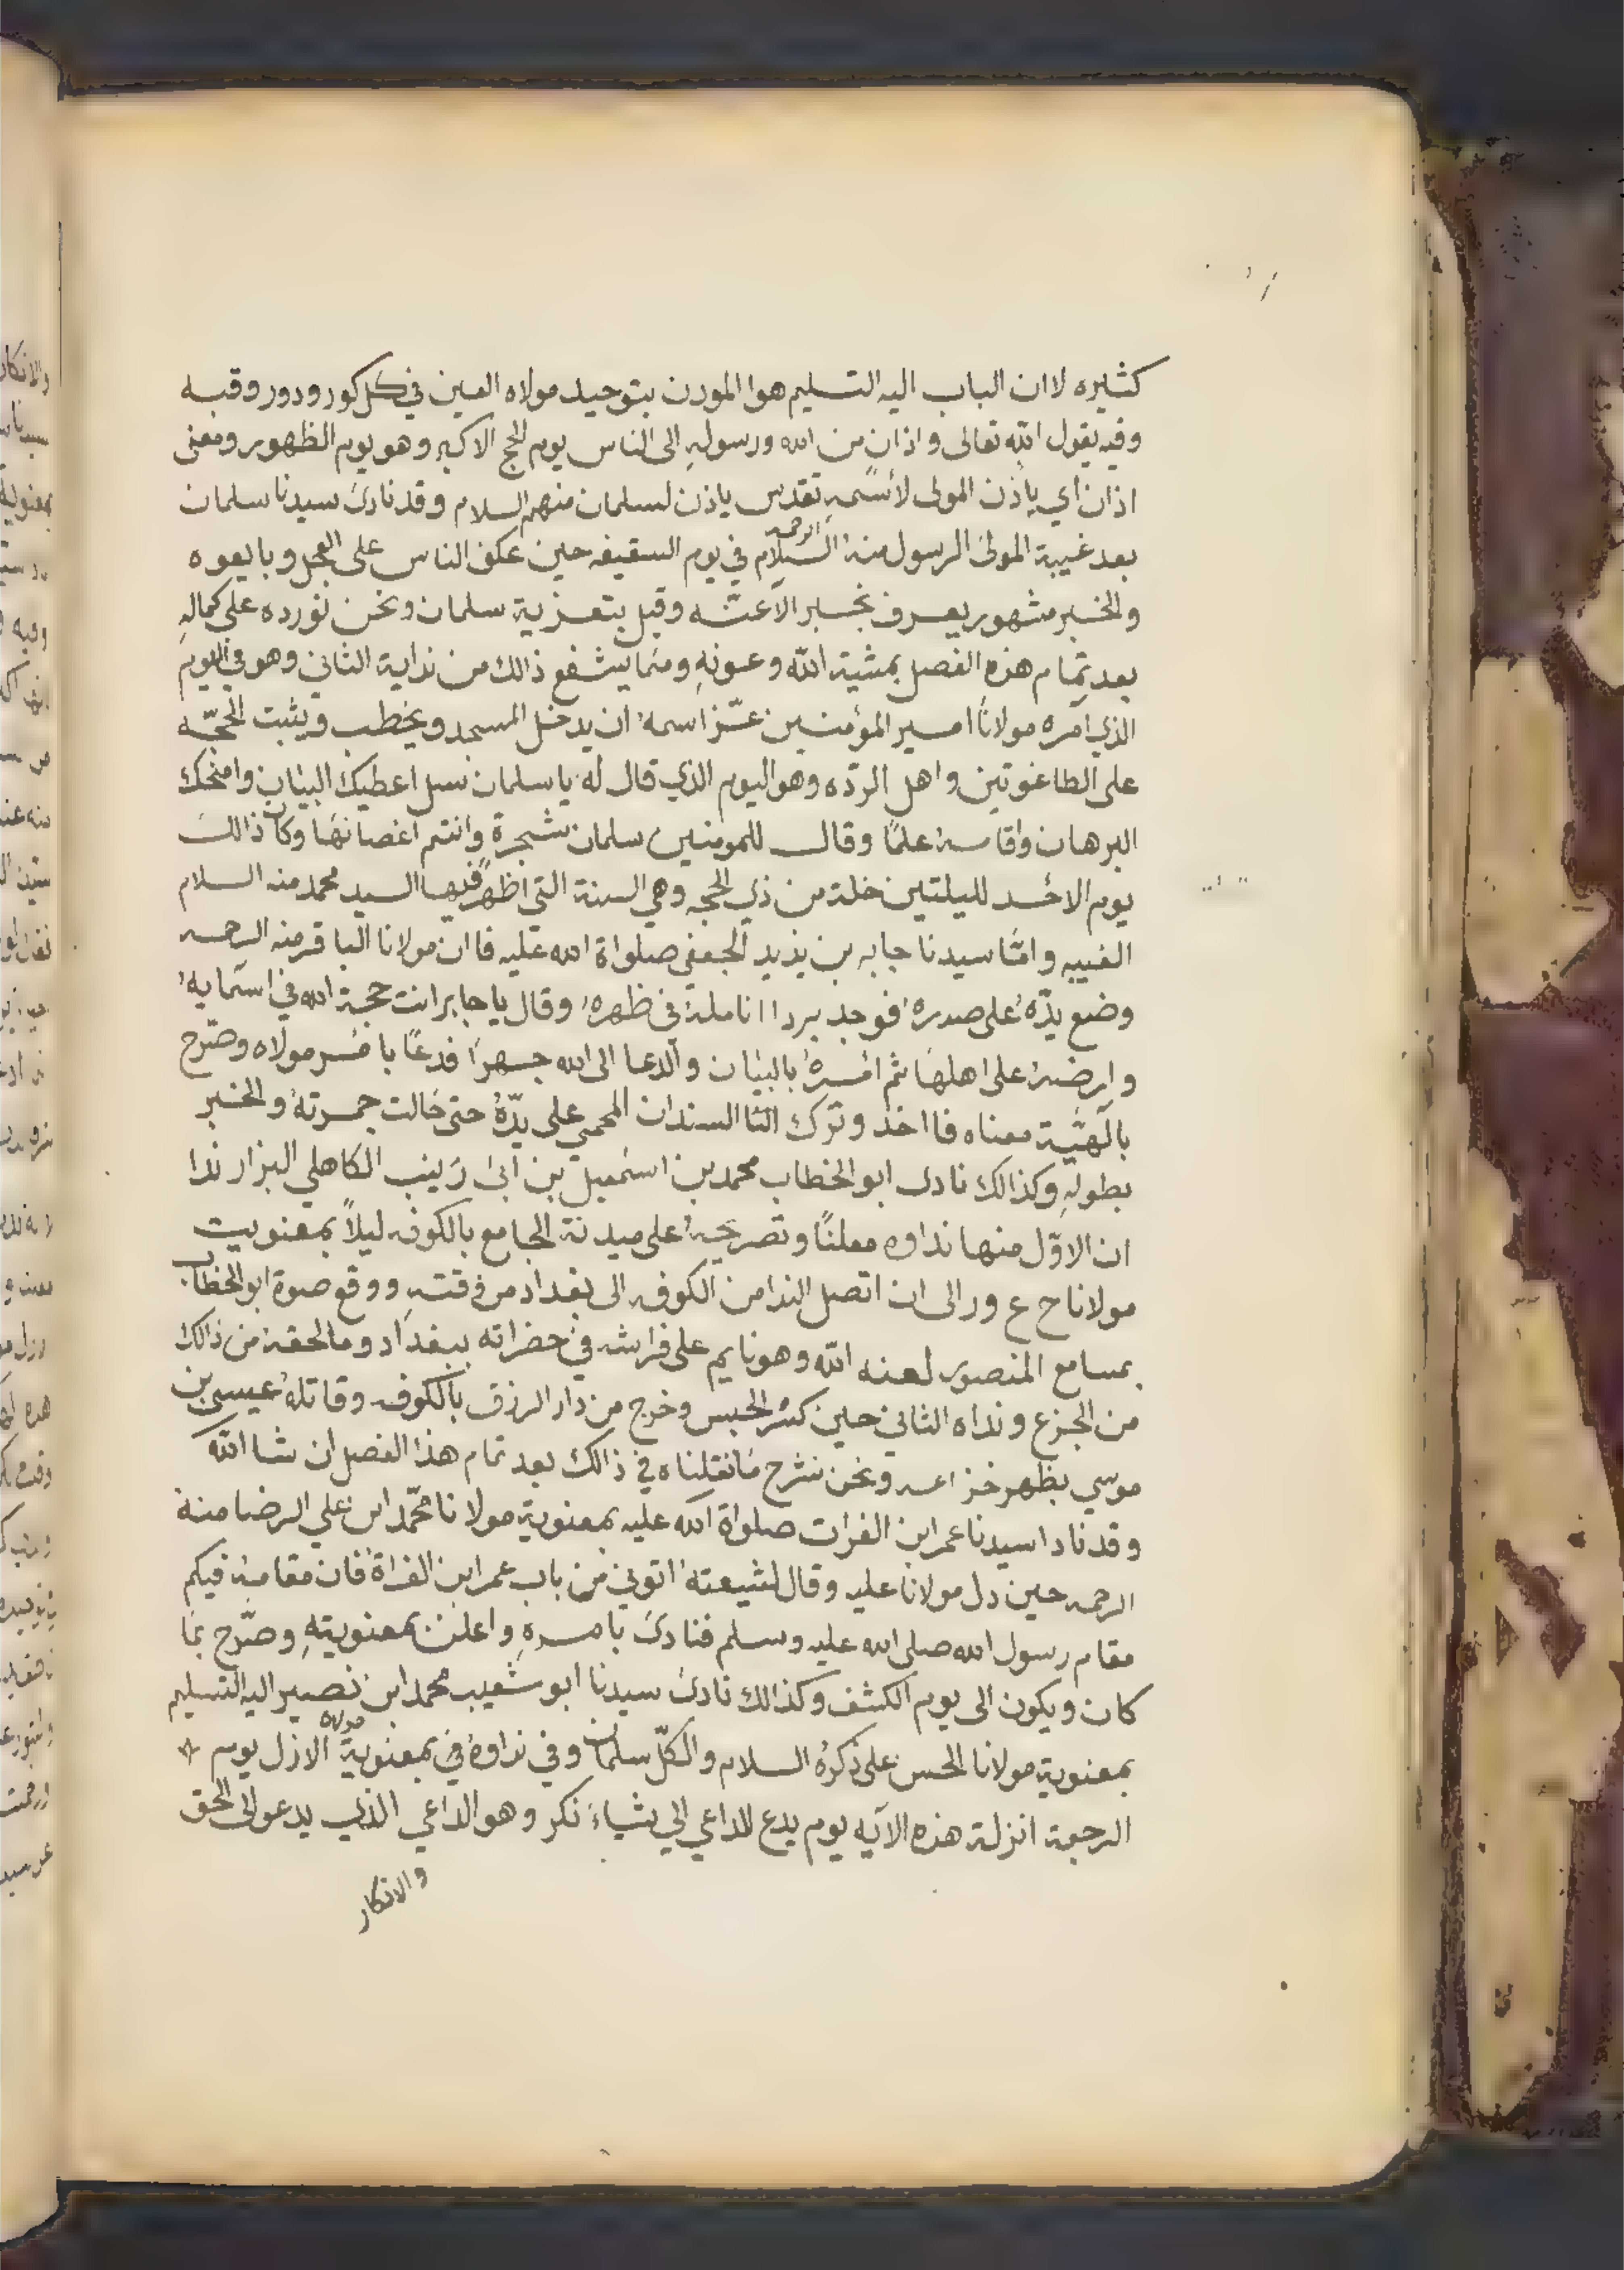 كثيره لاان الباب اليه التسليم هوا المودن بتوحيد مولاه العين في كل كور ودور وقبه
وفيه يقول الله تعالى واذان من الله ورسولهِ الى الناس يوم الحج الاكبر وهو يوم الظهور ومعنى
اذان اي ياذن المولى لأسمهِ تقدس ياذن لسلمان منهم السلام وقد نادىَ سيدنا سلمان
بعد غيبة المولىَ الرسول منهُ السلام الرحمه في يوم السقيفه حين عكف الناس على العجل وبايعوه
والخبر مشهور يعرف بخبر الاعتّه وقيل بتعزية سلمان ونحن نورده على كمالهِ
بعد تمام هذهِ الفصل بمشية الله وعونهِ ومما يشفع ذالك من نداية الثاني وهو في اليوم
الذي آمره مولانا امير المؤمنين عزّ اسمهُ ان يدخل المسجد ويخطب ويثبت الحجّه
على الطاغوتين واهل الردّه وهو اليوم الذي قال لهُ يا سلمان سل اعطيك البيان وامنحك
البرهان واقامهُ علمًا وقال للمومنين سلمان شجرة وانتم اغصانها وكان ذالك
يوم الاحد لليلتين خلة من ذي الحجه وهي السنة التي اظهر فيها السيد محمد منه السلام
الغيبه وامّا سيدنا جابر بن يزيد الجعفي صلواة الله عليه فاان مولانا الباقر منه الرحمه
وضع يدّهُ على صدرهُ فوجد برد اانامله في ظهرهُ وقال يا جابر انت حجة الله في اسمايهُ
وارضهُ على اهلها ثم امرهُ بالبيان والدعا الى الله جهرًا فدعا با مر مولاه وصرّح
بالهيّة معناه فااخذ وترك الثا السندان المحمي على يدّهُ حتى حالت جمرتهُ والخبر
بطولهِ وكذالك نادى ابو الخطاب محمد بن اسمعيل بن ابي زينب الكاهلي البزاز ندا
ان الاوّل منها نداوه معلنًا وتصريحهُ على ميدنة الجامع بالكوفه ليلاً بمعنويت
مولانا ح ع ور الى ان اتصل الندا من الكوفه الى بغداد من وقتهِ ووقع صوة ابو الخطاب
بمسامع المنصور لعنه الله وهو نايم على فراشه في حضراته ببغداد ومالحقهُ من ذالك
من الجزع ونداه الثاني حين كسر الحبس وخرج من دار الرزق بالكوفه وقاتلهُ عيسى بن
موسي بظهر خزاعه ونحن نشرح مانقلناه في ذالك بعد تمام هذا الفصل ان شا الله
وقد نادا سيدنا عمر ابن الفرات صلواة الله عليه بمعنوية مولانا محمّد ابن علي الرضا منة
الرحمه حين دل مولانا عليه وقال لشيعتهُ اتوني من باب عمر ابن الفراة فان مقامهُ فيكم
مقام رسول الله صلى الله عليه وسلم فنادىَ بامرهِ واعلن بمعنويتهِ وصرّح بما
كان ويكون الى يوم الكشف وكذالك نادىَ سيدنا ابو شعيب محمد ابن نصير اليه التسليم
بمعنوية مولانا الحسن على ذكرهُ السلام والكلّ سلمان وفي نداوهُ في بمعنوية مولاه الازل يوم
الرجعة انزلة هذه الآيه يوم يدع الداعي الي شياء نكر وهو الداعي الذي يدعو الى الحق
والانكار